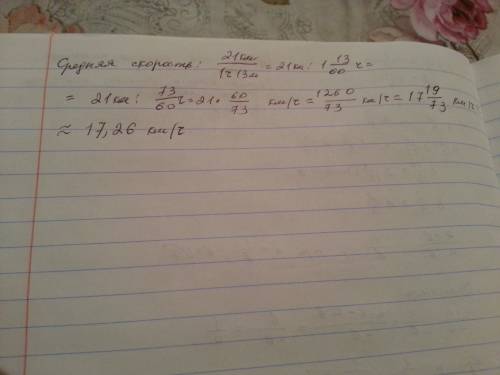 Средняя скорость: 21км/1ч13м = 21км : 1 13/60 ч =
= 21км : 73/60 ч = 21 • 60/73 км/ч = 1260/73 км/ч = 17 19/73 км/ч
≈ 17,26 км/ч